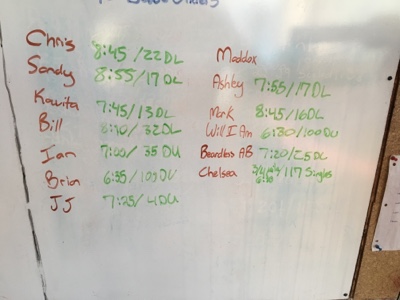 Chris 8:45/22DL
Sandy 8:55/17DL
Kawita 7:45/13DL
Bill 32DL
Ian 7:00/35DU
Brian 6:35/100DU
JJ 7:25/4DU
Maddox
Ashley 7:55/17DL
Mark 8:45/16DL
Will I Am 6:30/100DU
Beardless AB 7:20/25DL
Chelsea 117 Singles